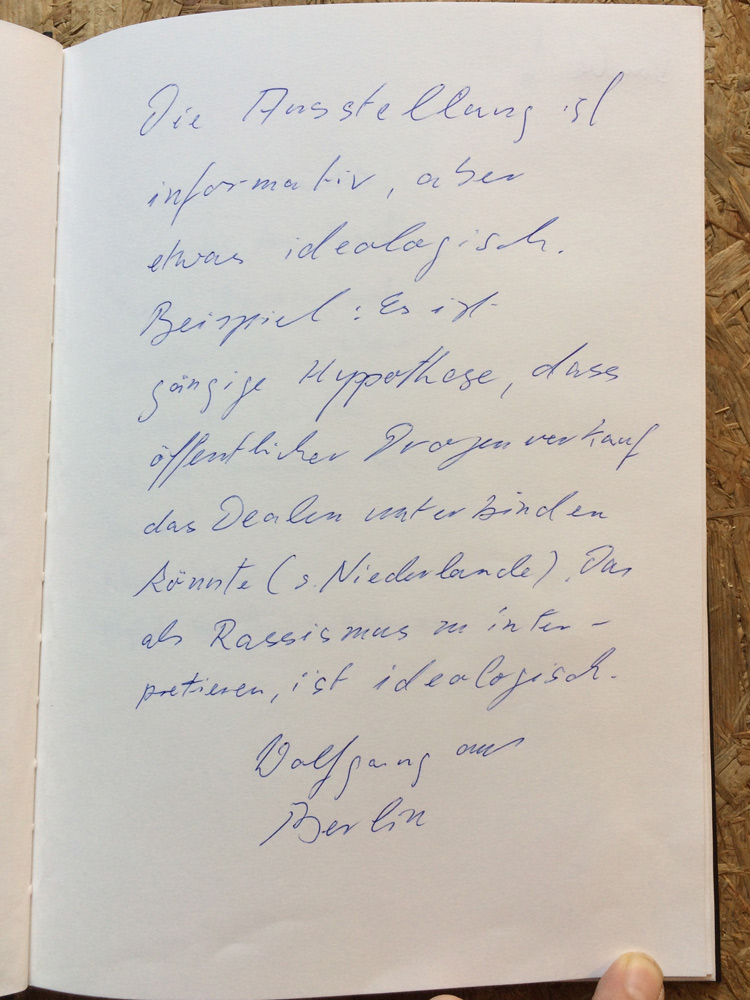 Die Ausstellung ist
informativ, aber
etwas ideologisch.
Beispiel: Es ist
gängige Hyppothese, dass
öffentlicher Drogenverkauf
das Dealen unterbinden
könnte (s. Niederlande). Das
als Rassismus zu inter-
pretieren, ist ideologisch.
Wolfgang aus
Berlin